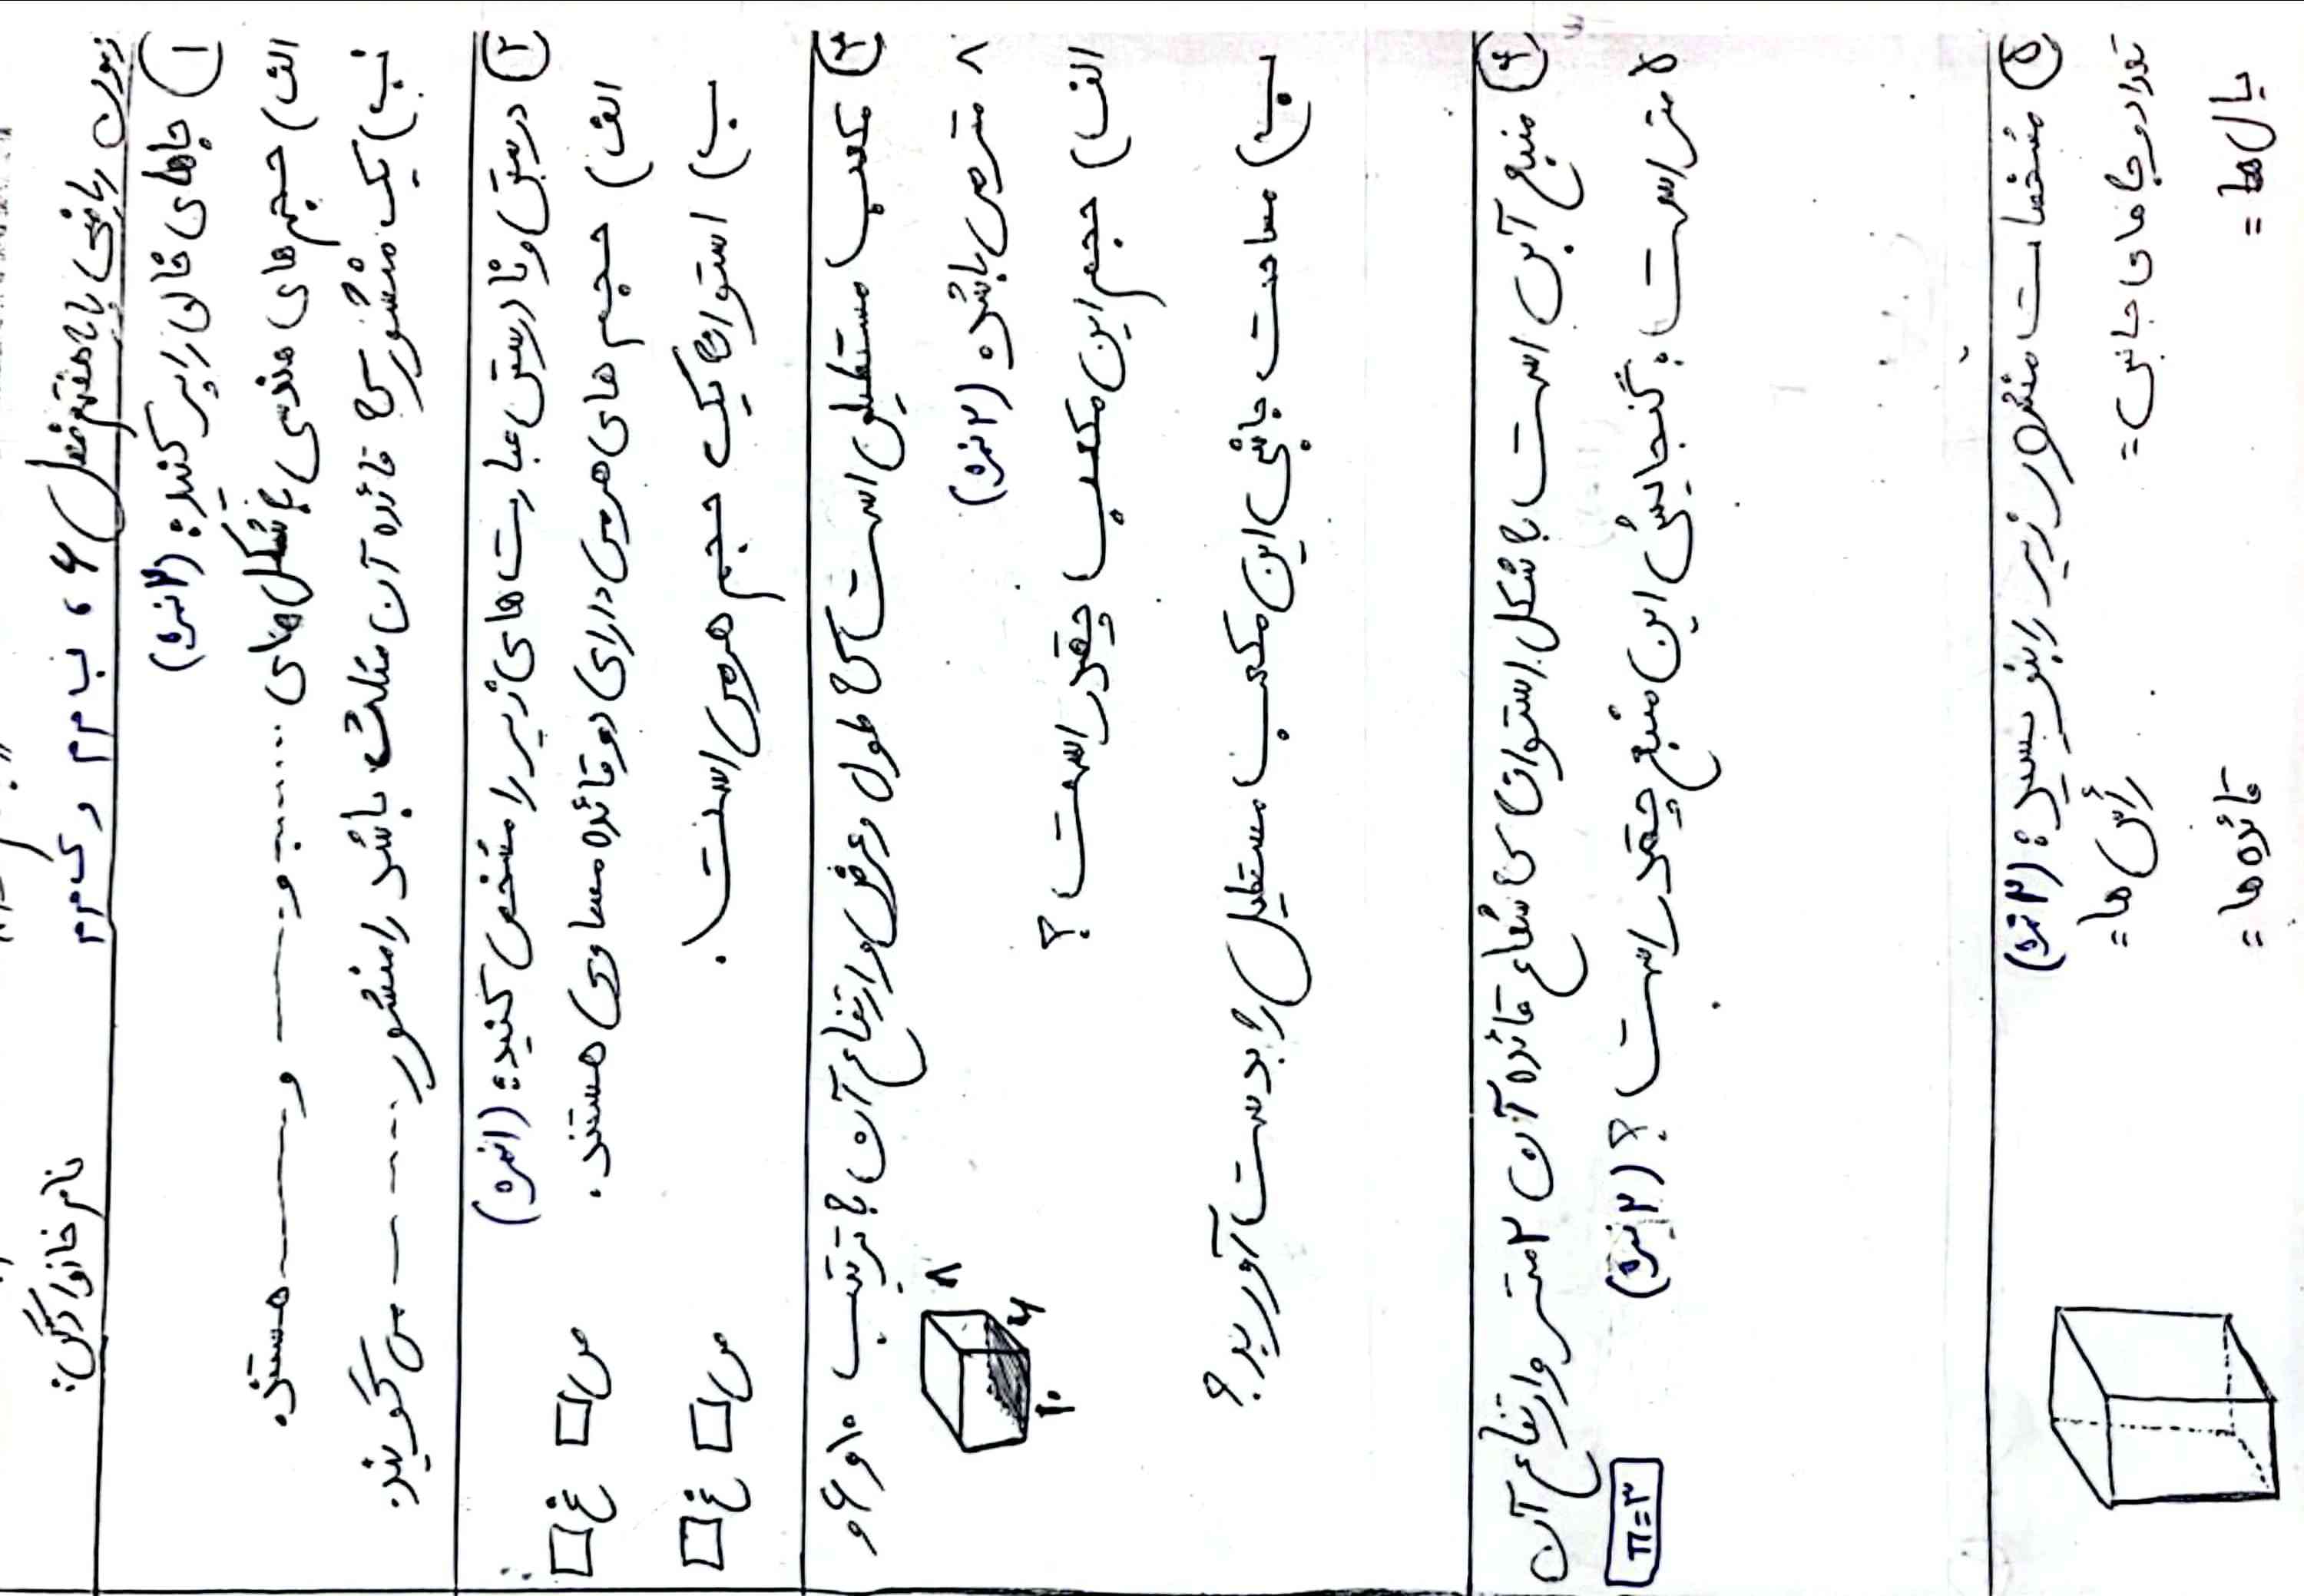 آزمون ریاضی پایه هفتم فصل ۶ ، ب م م و ک م م
نام خانوادگی:
۱ جاهای خالی را پر کنید: (۲ نمره)
الف) حجم های هندسی به شکل های ........ و ------ و ------ هستند.
ب) یک منشوری که قائده آن مثلث باشد را منشور ------ می گویند.
۲ درستی و نادرستی عبارت های زیر را مشخص کنید: (۱ نمره)
الف) حجم های هرمی دارای دو قائده مساوی هستند. ص□ غ□
ب) استوانه یک حجم هرمی است. ص□ غ□
۳ مکعب مستطیلی است که طول و عرض و ارتفاع آن به ترتیب ۱۰ و ۶ و
۸ متر می باشد. (۲ نمره)
۸
۶
۱۰
الف) حجم این مکعب چقدر است؟
ب) مساحت جانبی این مکعب مستطیل را بدست آورید؟
۴ منبع آبی است به شکل استوانه که شعاع قائده آن ۲ متر و ارتفاع آن
۵ متر است. گنجایش این منبع چقدر است؟ (۲ نمره) π=۳
۵ مشخصات منشور زیر را بنویسید: (۲ نمره)
تعداد وجه های جانبی = رأس ها =
یال ها = قائده ها =